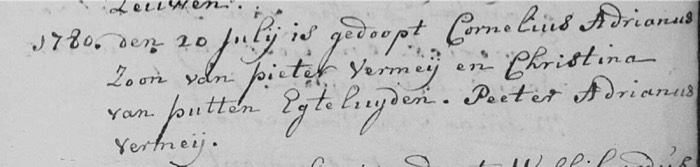 Leuwen.
1780. den 20 Julij is gedoopt Cornelius Adrianus
Zoon van pieter Vermeij en Christina
van putten Egteluyden. Peeter Adrianus
Vermeij.